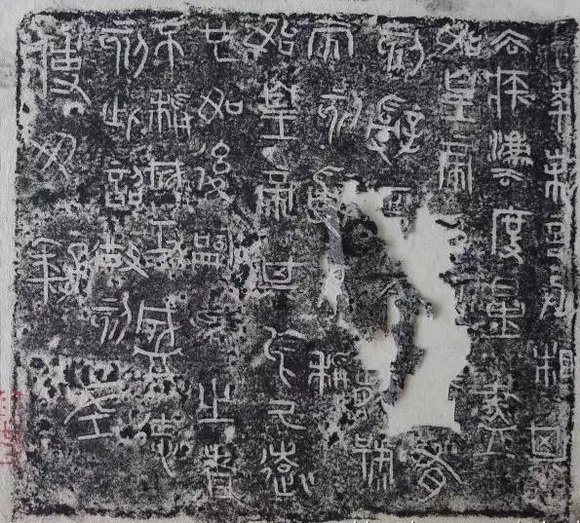 元年制詔丞相斯
去疾法度量盡
始皇帝為有
刻辭焉今襲號
而刻辭不稱
始皇帝其於久遠
也如後嗣為之者
不稱成功盛德
刻此詔故刻左
使毋疑